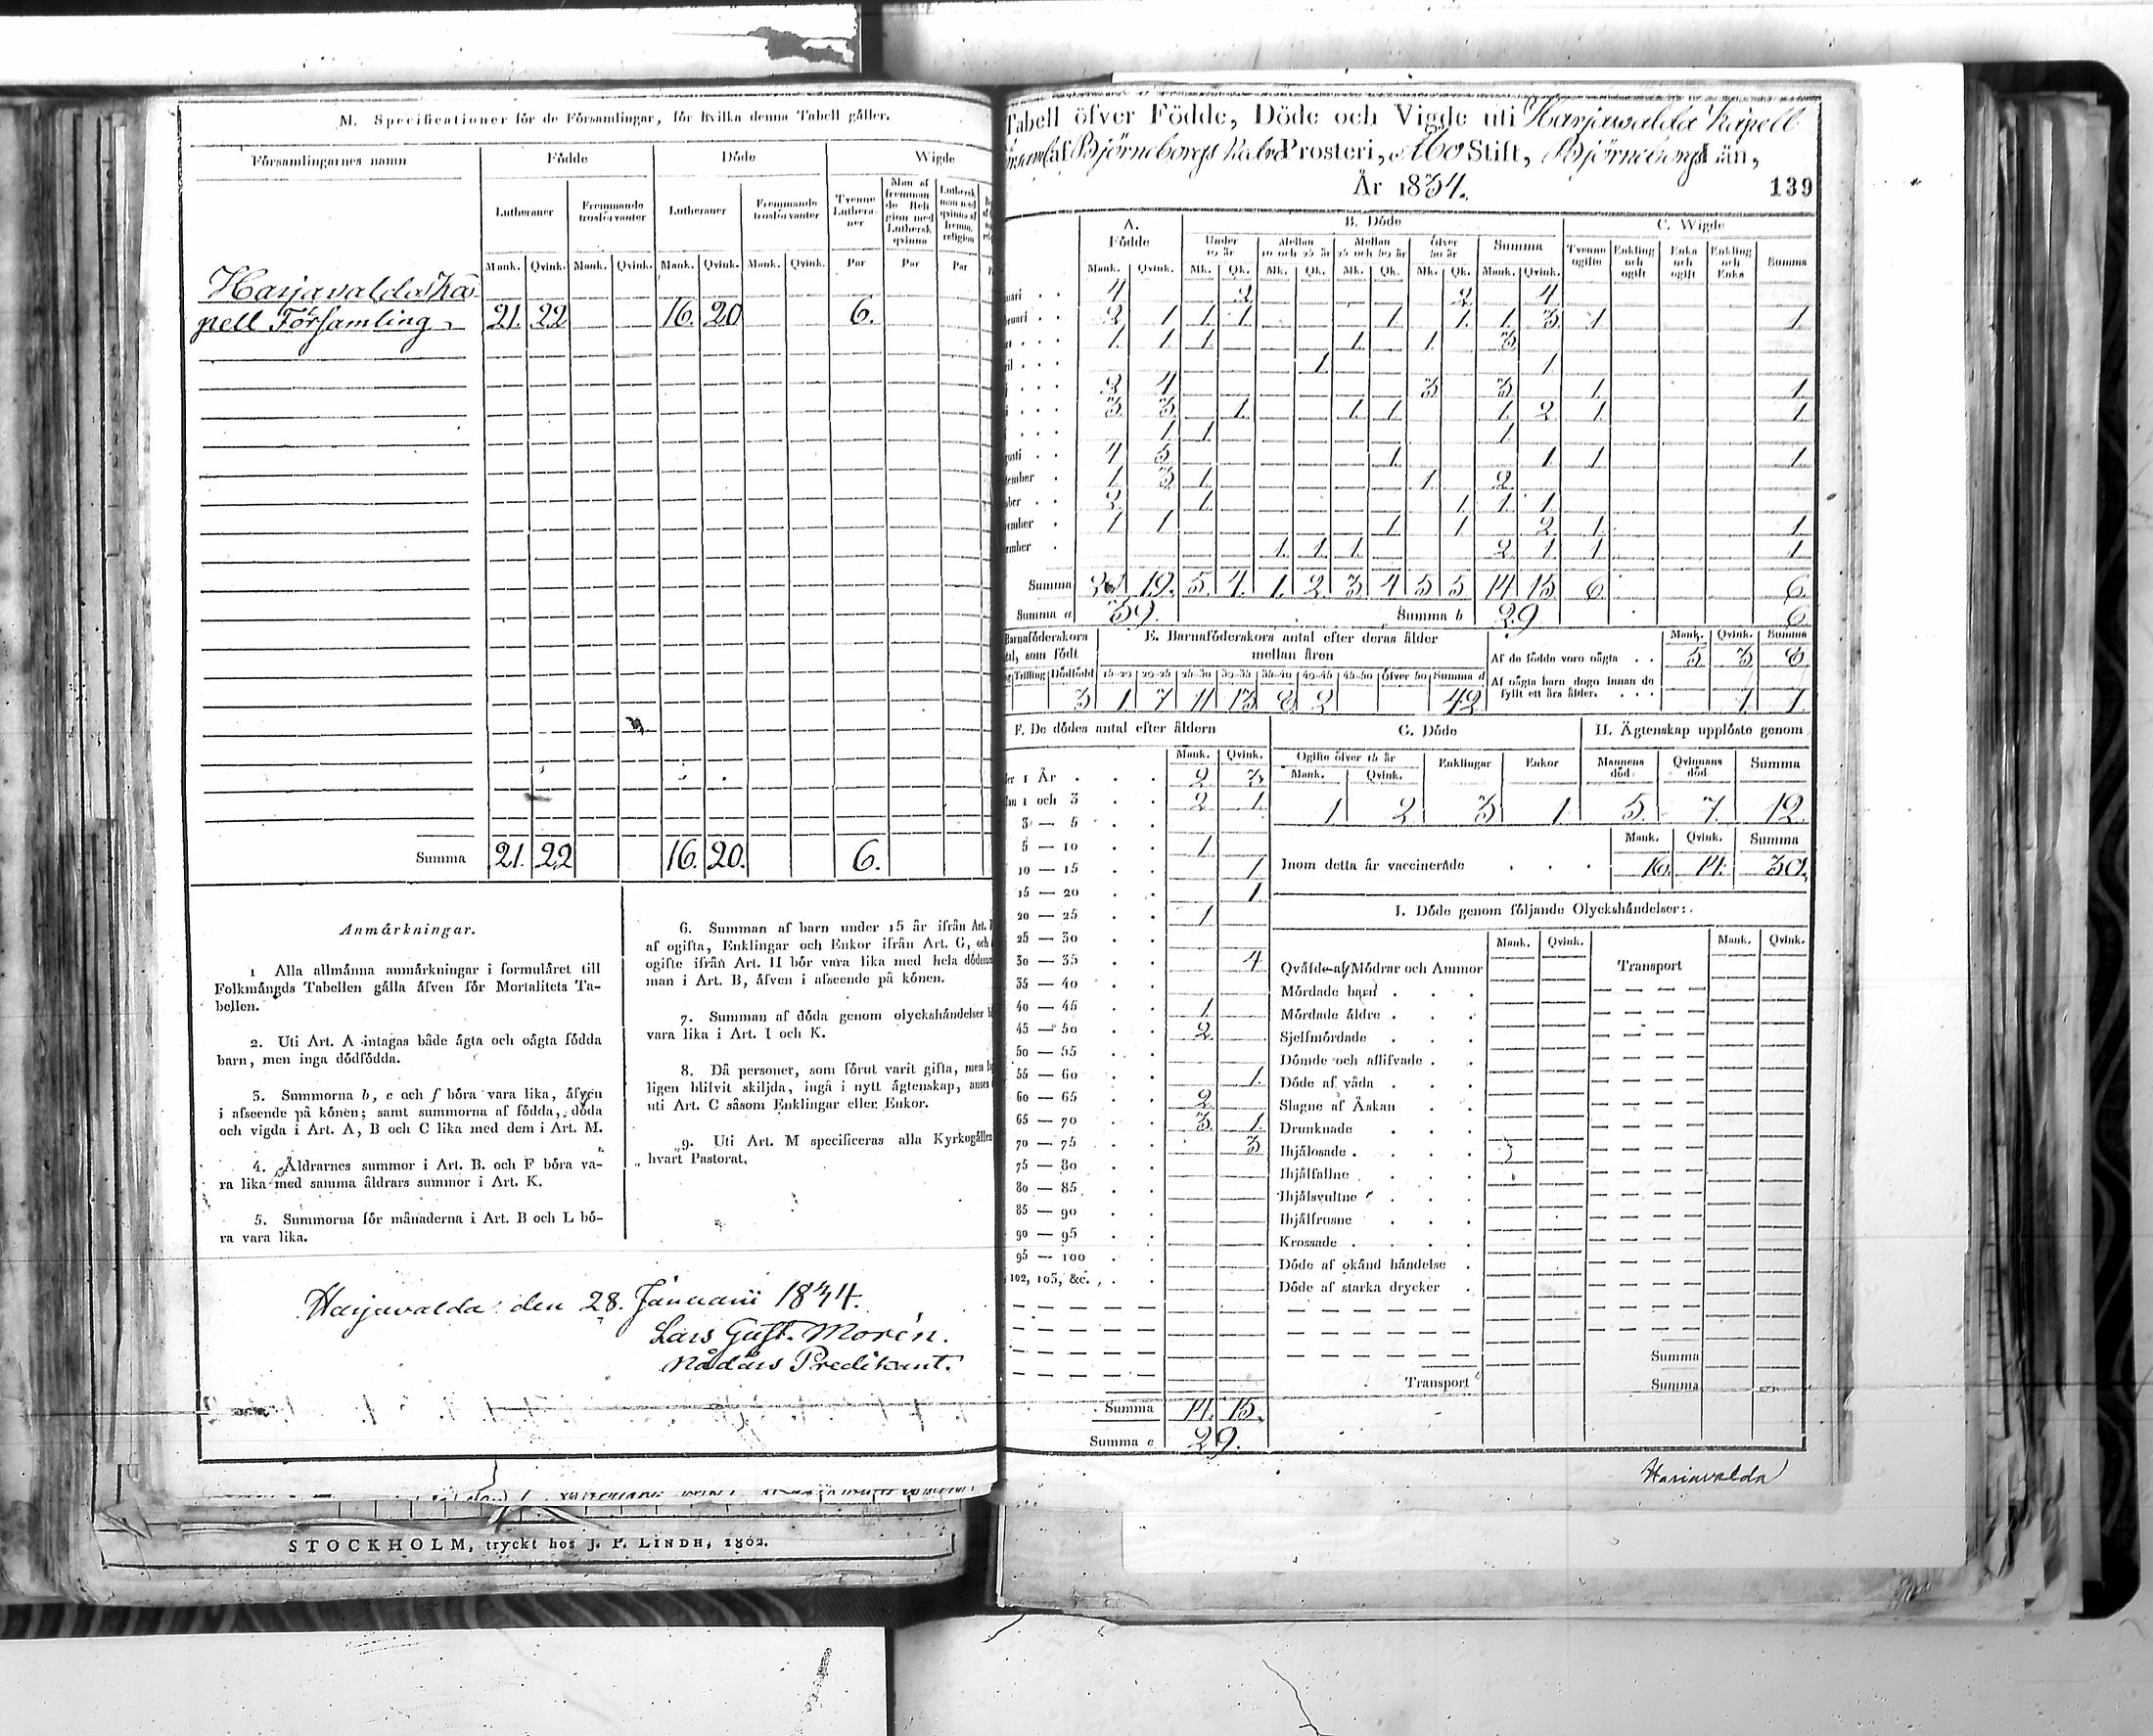 M. Specificationer för de Församlingar, för hvilka denna Tabell gäller.
Församlingarnes namn Födde Döde Wigde
Lutheraner Fremmande trosförvanter Lutheraner Fremmande trosförvanter Tvenne Lutheraner Man af fremmande Religion med Luthersk qvinna Luthersk man med qvinna af fremm. religion
Mank. Qvink. Mank. Qvink. Mank. Qvink. Mank. Qvink. Par Par Par
Harjavalda Ka-
pell Församling 21. 22 16. 20 6.
Summa 21. 22 16. 20. 6.
Anmärkningar.
1 Alla allmänna anmärkningar i formuläret till
Folkmängds Tabellen gälla äfven för Mortalitets Ta-
bellen.
2. Uti Art. A intagas både ägta och oägta födda
barn, men inga dödfödda.
3. Summorna b, e och f böra vara lika, äfven
i afseende på könen; samt summorna af födda, döda
och vigda i Art. A, B och C lika med dem i Art. M.
4. Åldrarnes summor i Art. B. och F böra va-
ra lika med samma åldrars summor i Art. K.
5. Summorna för månaderna i Art. B och L bö-
ra vara lika.
6. Summan af barn under 15 år ifrån Art.
af ogifta, Enklingar och Enkor ifrån Art. G, och
ogifte ifrån Art. H bör vara lika med hela
man i Art. B, äfven i afseende på könen.
7. Summan af döda genom olyckshändelser
vara lika i Art. I och K.
8. Då personer, som förut varit gifta, men
ligen blifvit skiljda, ingå i nytt ägtenskap, anses
uti Art. C såsom Enklingar eller Enkor.
9. Uti Art. M specificeras alla
hvart Pastorat.
Harjavalda den 28. Januarii 1834.
Lars Gust. Morén.
Nådårs Predikant.
STOCKHOLM, tryckt hos J. P. LINDH, 1802.
Tabell öfver Födde, Döde och Vigde uti Harjawalda Kapell
af Björneborgs Prosteri, Åbo Stift, Björneborgs Län,
År 1834.
139
A. Födde B. Döde C. Wigde
Under 10 år Mellan 10 och 25 år Mellan 25 och 50 år öfver 50 år Summa Tvenne ogifte Enkling och ogift Enka och ogift Enkling och Enka Summa
Mank. Qvink. Mk. Qk. Mk. Qk. Mk. Qk. Mk. Qk. Mank. Qvink.
4 2 2 4
2 1 1. 1. 1 1. 1. 3 1 1
1. 1 1. 1. 1 3
1. 1
2 4 3 3 1. 1.
3 3 1. 1 1. 1. 2 1 1
1 1. 1.
4 5 1. 1 1 1.
1 3 1. 1. 2
2 1. 1 1. 1
1 1 1. 1 2 1. 1.
1. 1. 1. 2. 1. 1 1
Summa 19. 5. 4. 1. 2. 3 4 5 5 14 15 6. 6.
Summa a 39. Summa b 29 6
Barnaföderskors
som födt
E. Barnaföderskors antal efter deras ålder
mellan åren
Trilling Dödfödd 15-20 20-25 25-30 30-35 35-40 40-45 45-50 öfver 50 Summa d
3 1. 7 11 13 8 2 42
Mank. Qvink. Summa
Af de födde voro oägta 5 3 8
Af oägta barn dogo innan de
fyllt ett års ålder. 1 1
F. De dödes antal efter åldern
Mank. Qvink.
1 År 2 3
1 och 3 2 1.
3 — 5
5 — 10 1.
10 — 15 1
15 — 20 1.
20 — 25 1
25 — 30
30 — 35 4
35 — 40
40 — 45 1
45 — 50 2
50 — 55
55 — 60 1.
60 — 65 2
65 — 70 3. 1.
70 — 75 3
75 — 80
80 — 85
85 — 90
90 — 95
95 — 100
102, 103, &c.
Summa 14. 15.
Summa e 29.
G. Döde
Ogifte öfver 15 år Enklingar Enkor
Mank. Qvink.
1 2 3 1.
H. Ägtenskap upplöste genom
Mannens död Qvinnans död Summa
5. 7. 12.
Mank. Qvink. Summa
Inom detta år vaccinerade 16. 14. 30.
I. Döde genom följande Olyckshändelser:
Mank. Qvink. Mank. Qvink.
Qväfde af Mödrar och Ammor Transport
Mördade barn
Mördade äldre
Sjelfmördade
Dömde och aflifvade
Döde af våda
Slagne af Åskan
Drunknade
Ihjälosade
Ihjälfallne
Ihjälsvultne
Ihjälfrusne
Krossade
Döde af okänd händelse
Döde af starka drycker
Summa
Transport Summa
Harjavalda